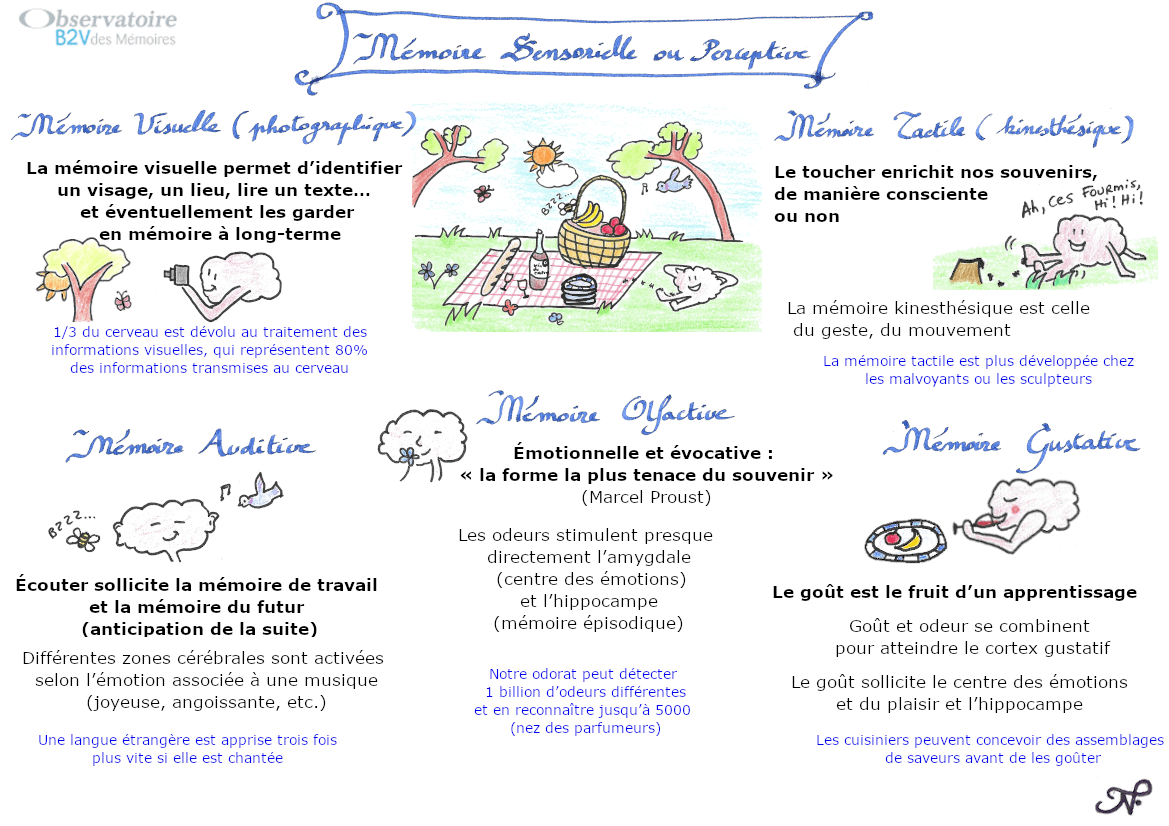 Observatoire
B2V des Mémoires
Mémoire Sensorielle ou Perceptive
Mémoire Visuelle (photographique)
La mémoire visuelle permet d'identifier
un visage, un lieu, lire un texte...
et éventuellement les garder
en mémoire à long-terme
1/3 du cerveau est dévolu au traitement des
informations visuelles, qui représentent 80%
des informations transmises au cerveau
BZZZ...
Mémoire Tactile (kinesthésique)
Le toucher enrichit nos souvenirs,
de manière consciente
ou non
Ah, ces Fourmis,
Hi! Hi!
La mémoire kinesthésique est celle
du geste, du mouvement
La mémoire tactile est plus développée chez
les malvoyants ou les sculpteurs
Mémoire Auditive
BZZZ...
Écouter sollicite la mémoire de travail
et la mémoire du futur
(anticipation de la suite)
Différentes zones cérébrales sont activées
selon l'émotion associée à une musique
(joyeuse, angoissante, etc.)
Une langue étrangère est apprise trois fois
plus vite si elle est chantée
Mémoire Olfactive
Émotionnelle et évocative :
« la forme la plus tenace du souvenir »
(Marcel Proust)
Les odeurs stimulent presque
directement l'amygdale
(centre des émotions)
et l'hippocampe
(mémoire épisodique)
Notre odorat peut détecter
1 billion d'odeurs différentes
et en reconnaître jusqu'à 5000
(nez des parfumeurs)
Mémoire Gustative
Le goût est le fruit d'un apprentissage
Goût et odeur se combinent
pour atteindre le cortex gustatif
Le goût sollicite le centre des émotions
et du plaisir et l'hippocampe
Les cuisiniers peuvent concevoir des assemblages
de saveurs avant de les goûter
N.